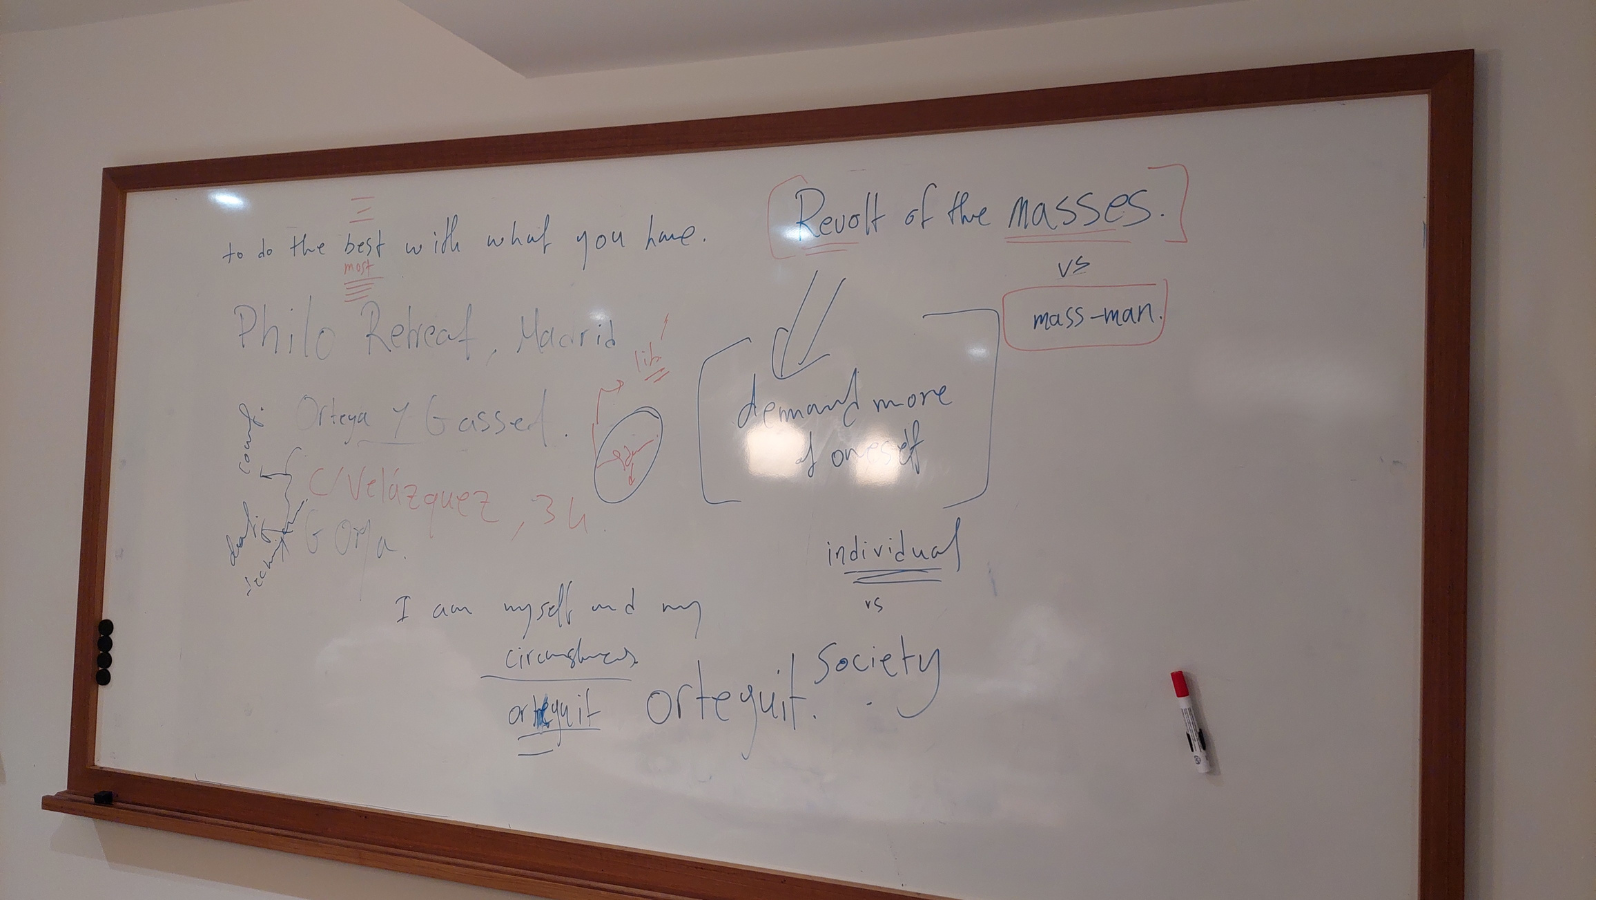 to do the best with what you have.
most
Revolt of the masses.
vs
mass-man.
Philo Retreat, Madrid
demand more
of oneself
Ortega y Gasset.
C/Velázquez, 34.
individual
vs
society
I am myself and my
circumstances
orteguit orteguit.